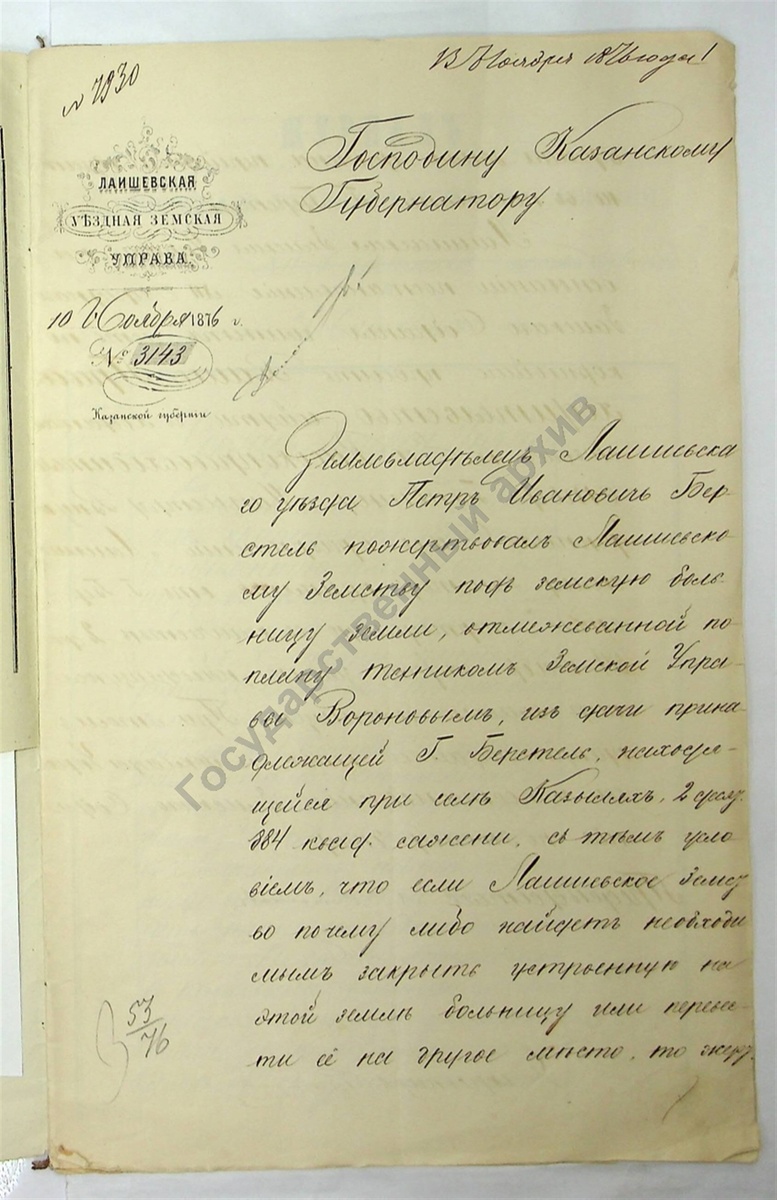 № 7930
13 Ноября 1876 года
ЛАИШЕВСКАЯ
УѢЗДНАЯ ЗЕМСКАЯ
УПРАВА.
10 Ноября 1876 г.
№ 3143
Казанской губерніи
Господину Казанскому
Губернатору
Землевладѣлецъ Лаишевска
го уѣзда Петръ Ивановичъ Бер-
стель пожертвовалъ Лаишевско-
му Земству подъ земскую боль-
ницу земли, отмежеванной по
плану техникомъ Земской Упра-
вы Вороновымъ, изъ дачи прина-
длежащей Г. Берстель, находя-
щейся при селѣ Казыляхъ, 2 десят.
884 квад. сажени, съ тѣмъ усло-
віемъ, что если Лаишевское Земст
во почему либо найдетъ необходи
мымъ закрыть устроенную на
этой землѣ больницу или переве-
сти её на другое мѣсто, то
53/76
Государственный архив